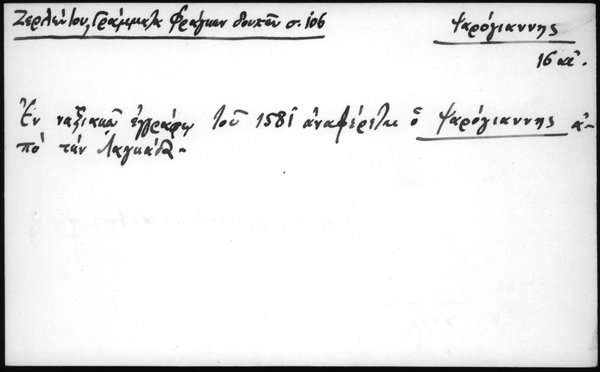 Ζερλέντου, Γράμματα Φράγκων δουκῶν σ. 106
Ψαρόγιαννης
16 αἰ.
Ἐν ναξιακῷ ἐγγράφῳ τοῦ 1581 ἀναφέρεται ὁ Ψαρόγιαννης ἀ-
πό τήν Λαγκάδα.